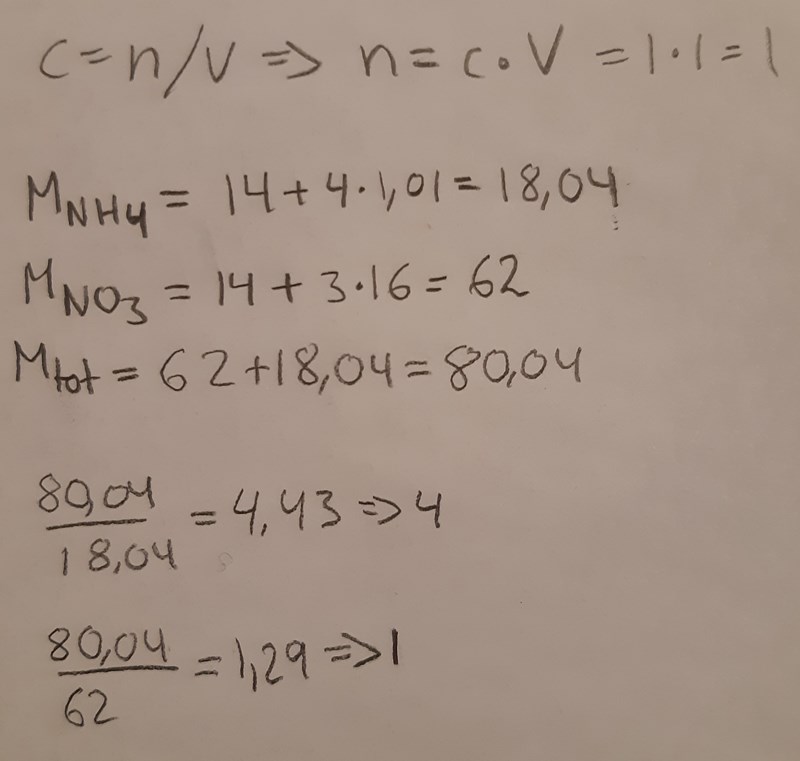 C = n/V => n = c·V = 1·1 = 1
M_NH4 = 14 + 4·1,01 = 18,04
M_NO3 = 14 + 3·16 = 62
M_tot = 62 + 18,04 = 80,04
80,04/18,04 = 4,43 => 4
80,04/62 = 1,29 => 1